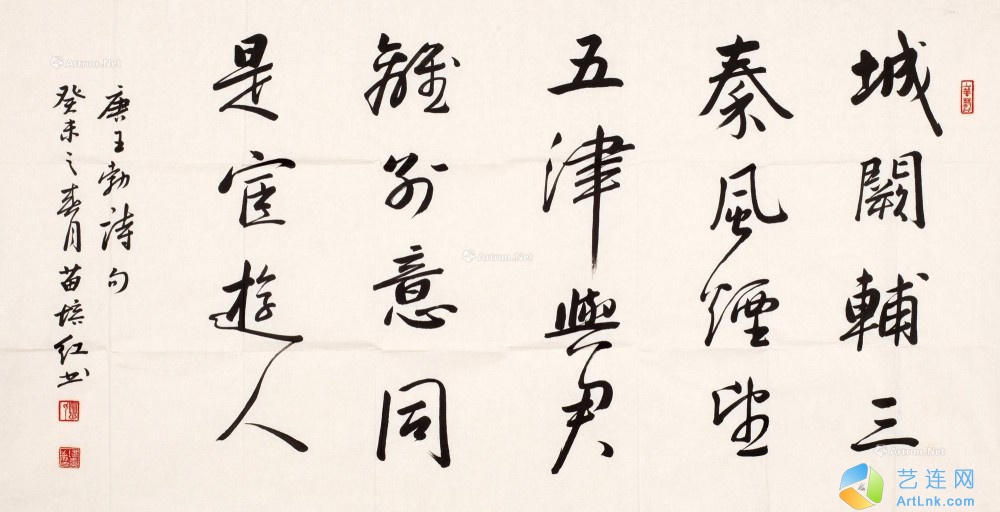 城阙輔三
秦風煙望
五津與君
離別意同
是宦遊人
唐王勃詩句
癸未之春月苗培红书
Artron.Net
Artron.Net
Artron.Net
Artron.Net
艺连网
ArtLnk.com